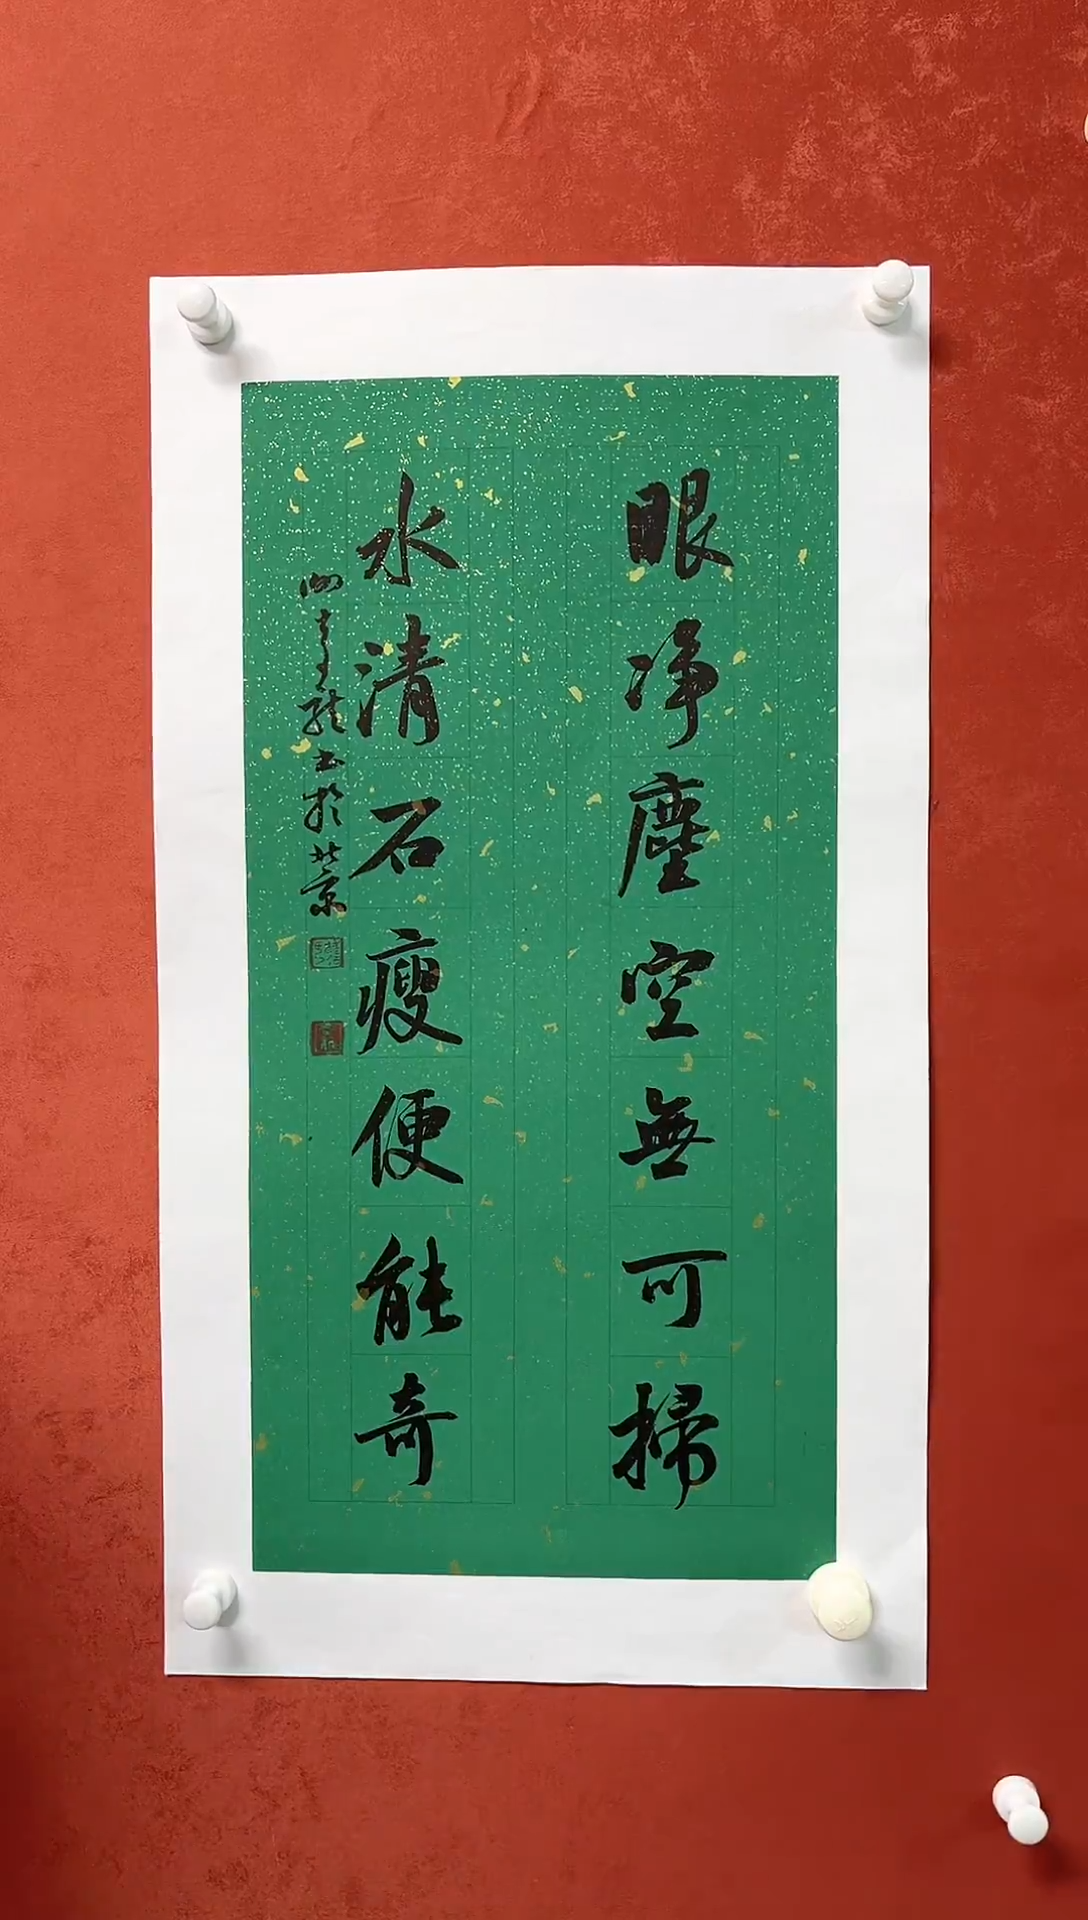 眼净塵空無可掃
水清石瘦便能奇
書於北京